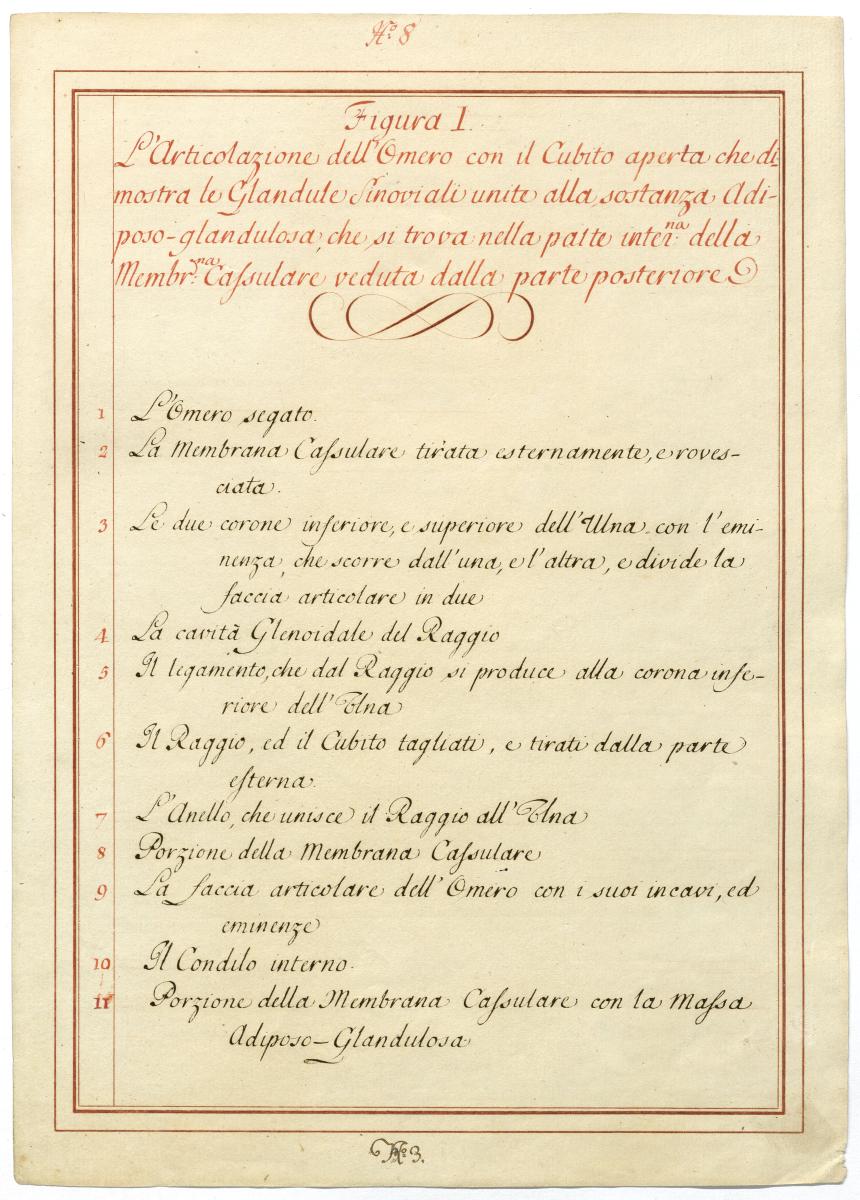 N.º 8
Figura 1.
L'Articolazione dell'Omero con il Cubito aperta che di
mostra le Glandule Sinoviali unite alla sostanza Adi-
poso-glandulosa, che si trova nella parte inter.na della
Membr.na Caſsulare veduta dalla parte posteriore
1 L'Omero segato.
2 La Membrana Caſsulare tirata esternamente, e roves-
ciata.
3 Le due corone inferiore, e superiore dell'Ulna con l'emi-
nenza, che scorre dall'una, e l'altra, e divide la
faccia articolare in due
4 La cavità Glenoidale del Raggio
5 Il legamento, che dal Raggio si produce alla corona infe-
riore dell'Ulna
6 Il Raggio, ed il Cubito tagliati, e tirati dalla parte
eſterna.
7 L'Anello, che unisce il Raggio all'Ulna
8 Porzione della Membrana Caſsulare
9 La faccia articolare dell'Omero con i suoi incavi, ed
eminenze
10 Il Condilo interno.
11 Porzione della Membrana Caſsulare con la Maſsa
Adiposo-Glandulosa
N.º 3.